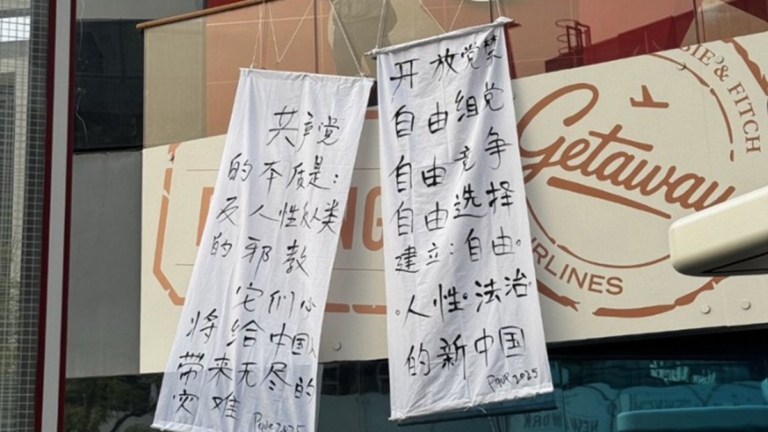 共产党
的本质是：
反人性人类
的邪教
它们必
将给中国人
带来无尽的
灾难 Pque 2025
开放党禁
自由组党
自由竞争
自由选择
建立：自由。
。人性。法治。
的新中国
Pque 2025
Getaway
IRLINES
IE & FITCH
NG